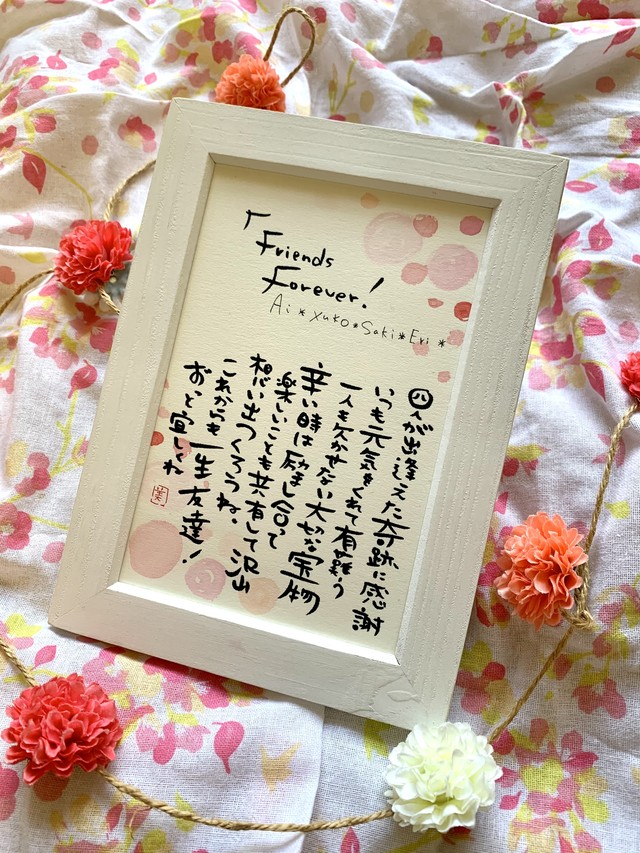 「Friends
Forever!
Ai＊Yuko＊Saki＊Eri＊
四人が出逢えた奇跡に感謝
いつも元気をくれて有難う
一人も欠かせない大切な宝物
辛い時は励まし合って
楽しいことも共有して沢山
想い出つくろうね。
これからも一生友達!
ずっと宜しくね
美